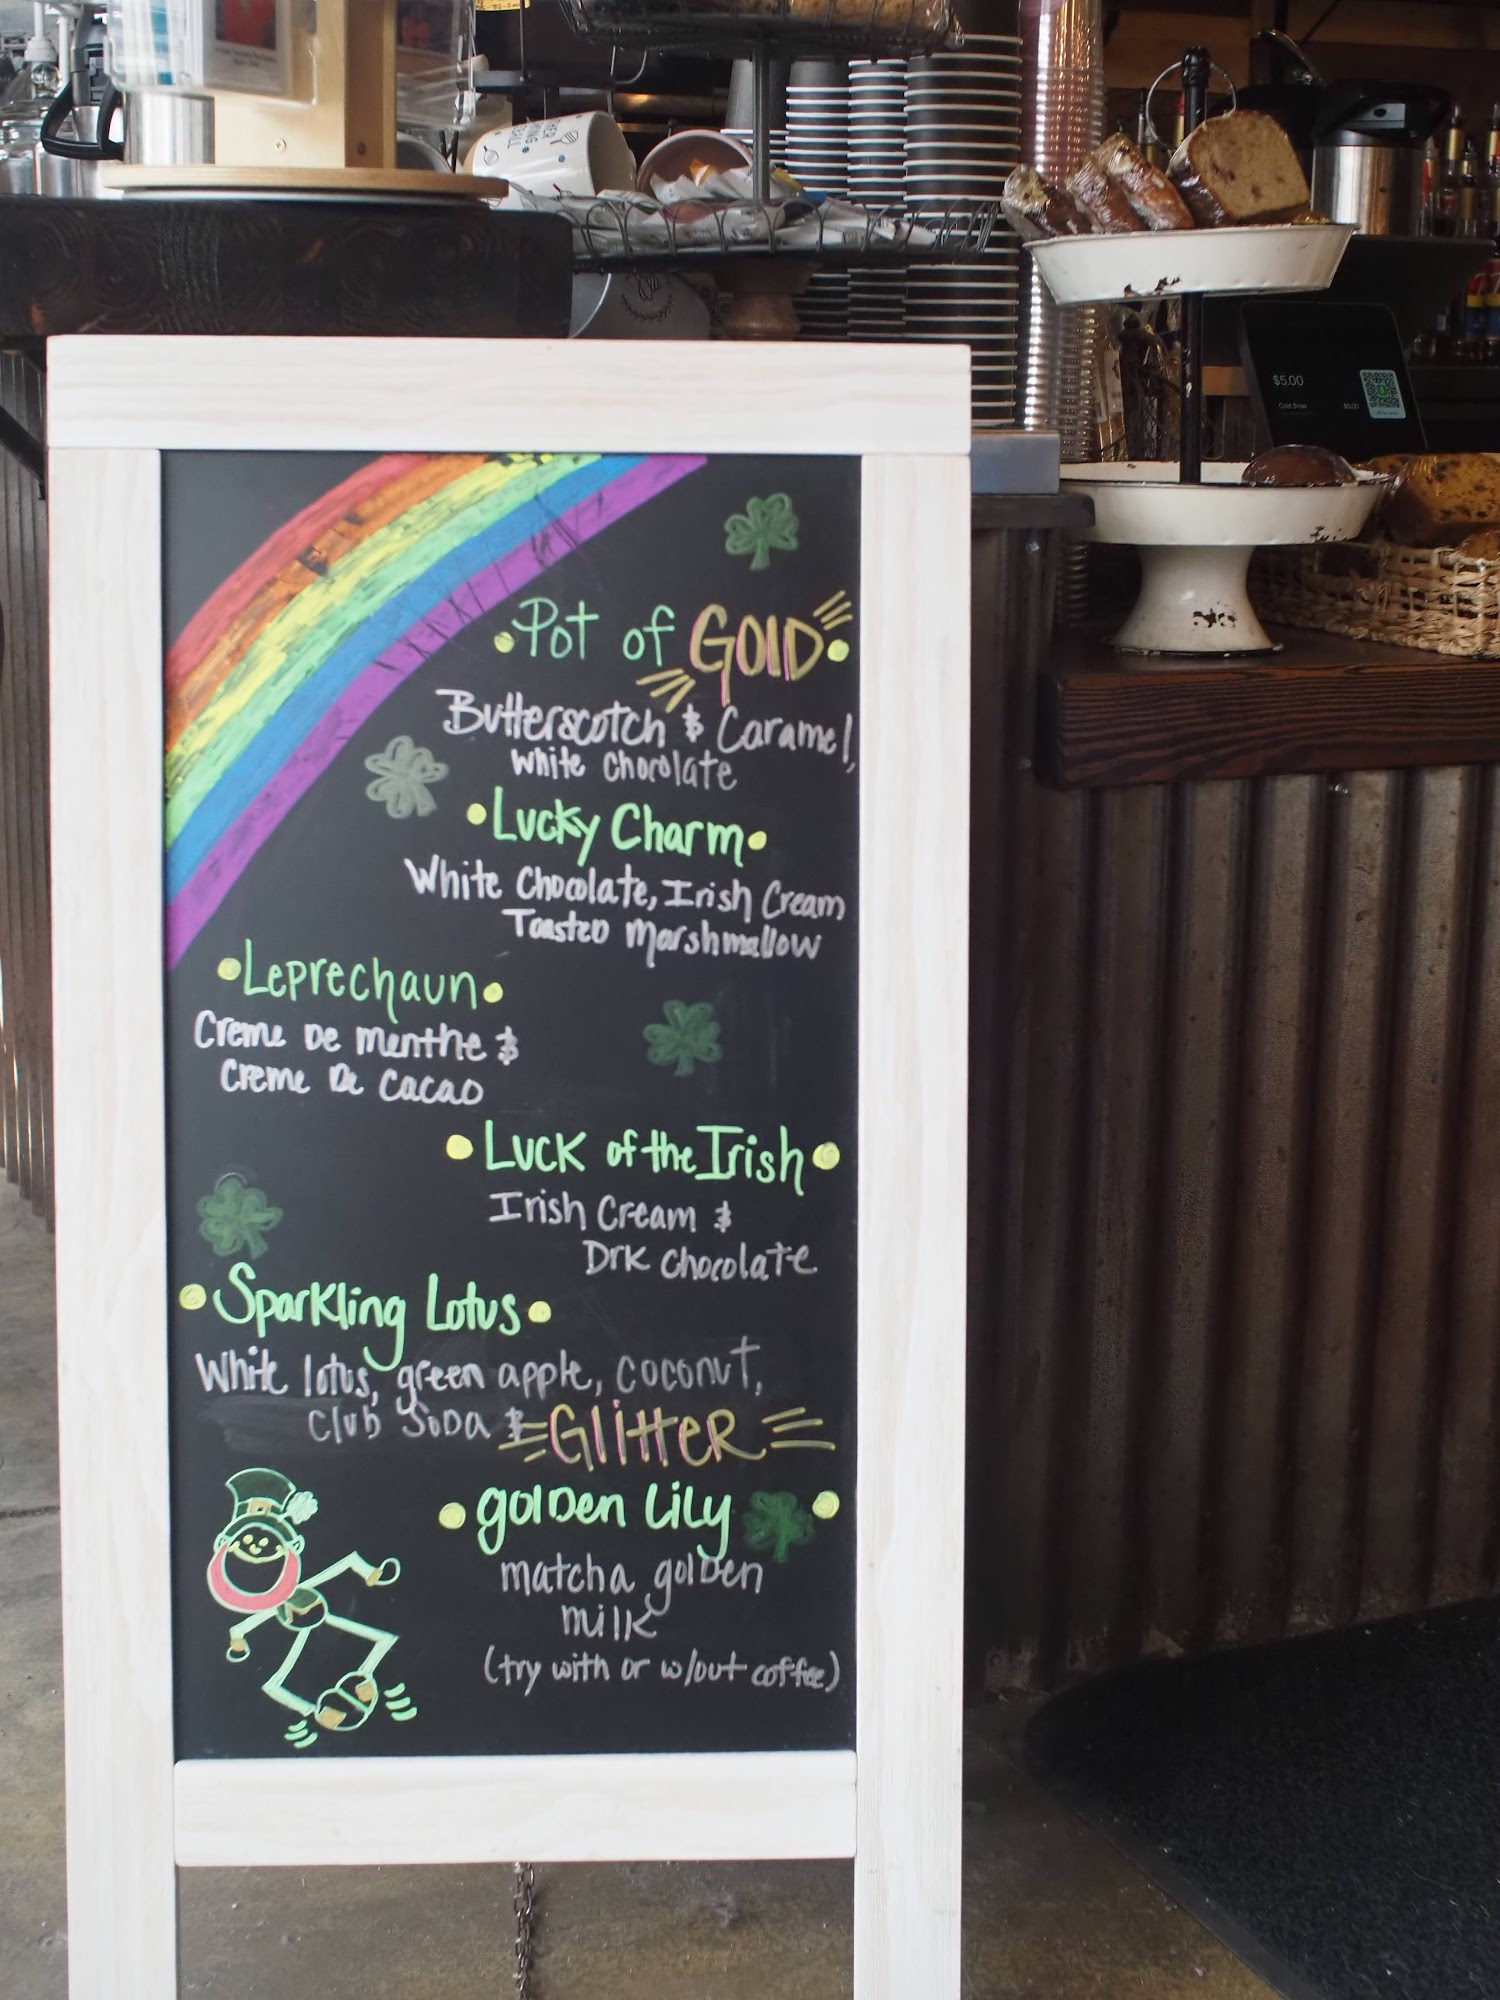 $5.00
Cold Brew $5.00
Pot of GOLD
Butterscotch & Caramel,
White Chocolate
Lucky Charm
White Chocolate, Irish Cream
Toasted Marshmallow
Leprechaun
Creme De Menthe &
Creme De Cacao
Luck of the Irish
Irish Cream &
Drk Chocolate
Sparkling Lotus
White lotus, green apple, coconut,
Club Soda & GLitteR
golden Lily
matcha golden
milk
(try with or w/out coffee)